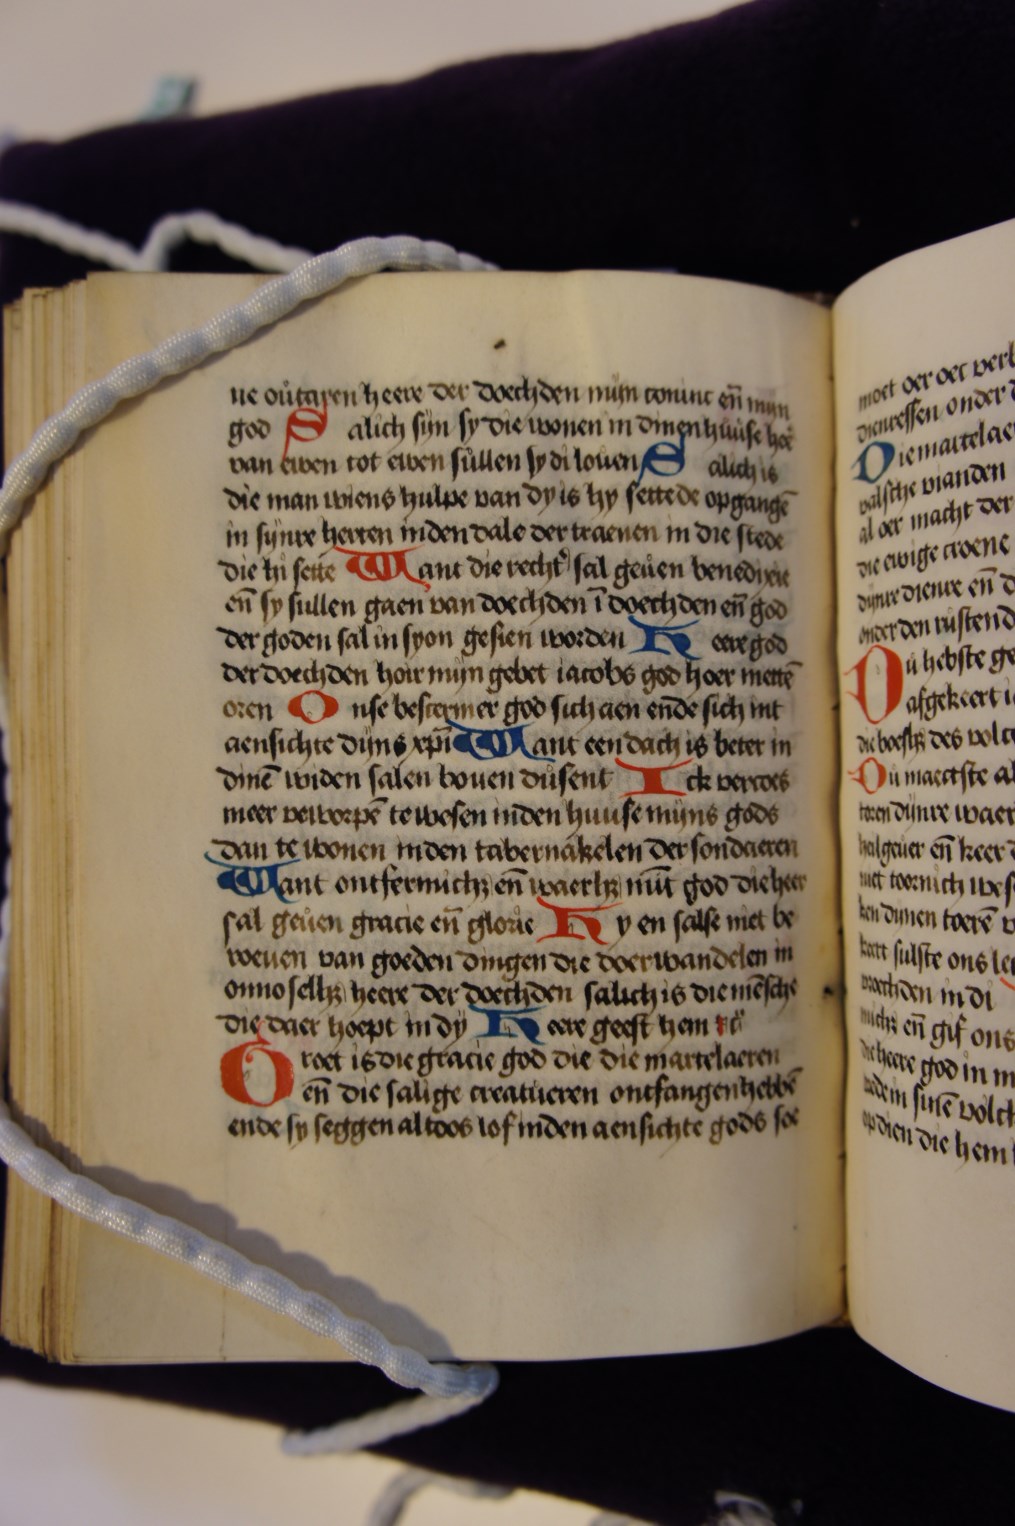 ue oůtaren heere der doechden mijn coninc eñ mijn
god Salich sijn sy die wonen in dinen huuse hee
van ewen tot ewen sůllen sy di louen Salich is
die man wiens hulpe van dy is hy settede opgangē
in sijnre herten inden dale der traenen in die stede
die hi sette Want die recht sal geůen benedixie
eñ sy sullen gaen van doechden ī doechden eñ god
der goden sal in syon gesien worden Heere god
der doechden hoir mijn gebet iacobs god hoer mettē
oren Onse beschermer god sich aen eñde sich int
aensichte dijns xpī Want een dach is beter in
dinē widen salen bouen důsent Ick vercoes
meer veworpē te wesen inden huuse mijns gods
dan te wonen inden tabernakelen der sondaeren
Want ontfermich eñ waerh mīt god die heer
sal geůen gracie eñ glorie Hy en salse niet be
roeuen van goeden dingen die doer wandelen in
onnosellh heere der doechden salich is die mēsche
die daer hoept in dy Heere geeft hem
Groet is die gracie god die die martelaeren
eñ die salige creatůeren ontfangen hebbē
ende sy seggen altoos lof inden aensichte gods soe
moet oer oec
onder
Die martelaer
valsche vianden
al oer macht der
die ewige croene
dijnre dienre eñ
onder den
Dů hebste ge
afgekeert
die des volc
Dů maectste al
toren dijnre waer
halgeuer eñ keer
niet toornich wes
ken dinen toerē
keert sulste ons
in di
eñ gif ons
die heere god in m
in sinē volck
op dien die hem